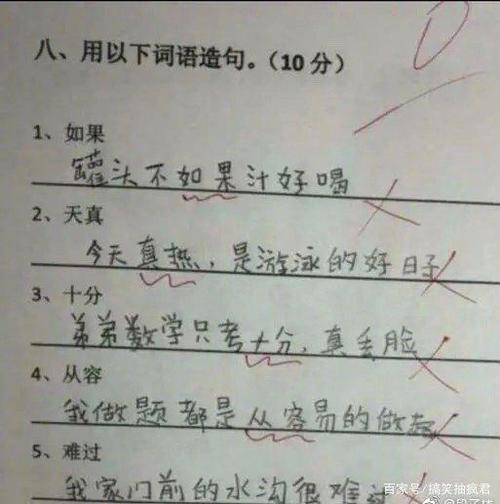 0
八、用以下词语造句。(10分)
1、如果
罐头不如果汁好喝
2、天真
今天真热，是游泳的好日子
3、十分
弟弟数学只考十分，真丢脸
4、从容
我做题都是从容易的做起
5、难过
我家门前的水沟很难过
百家号/搞笑抽疯君